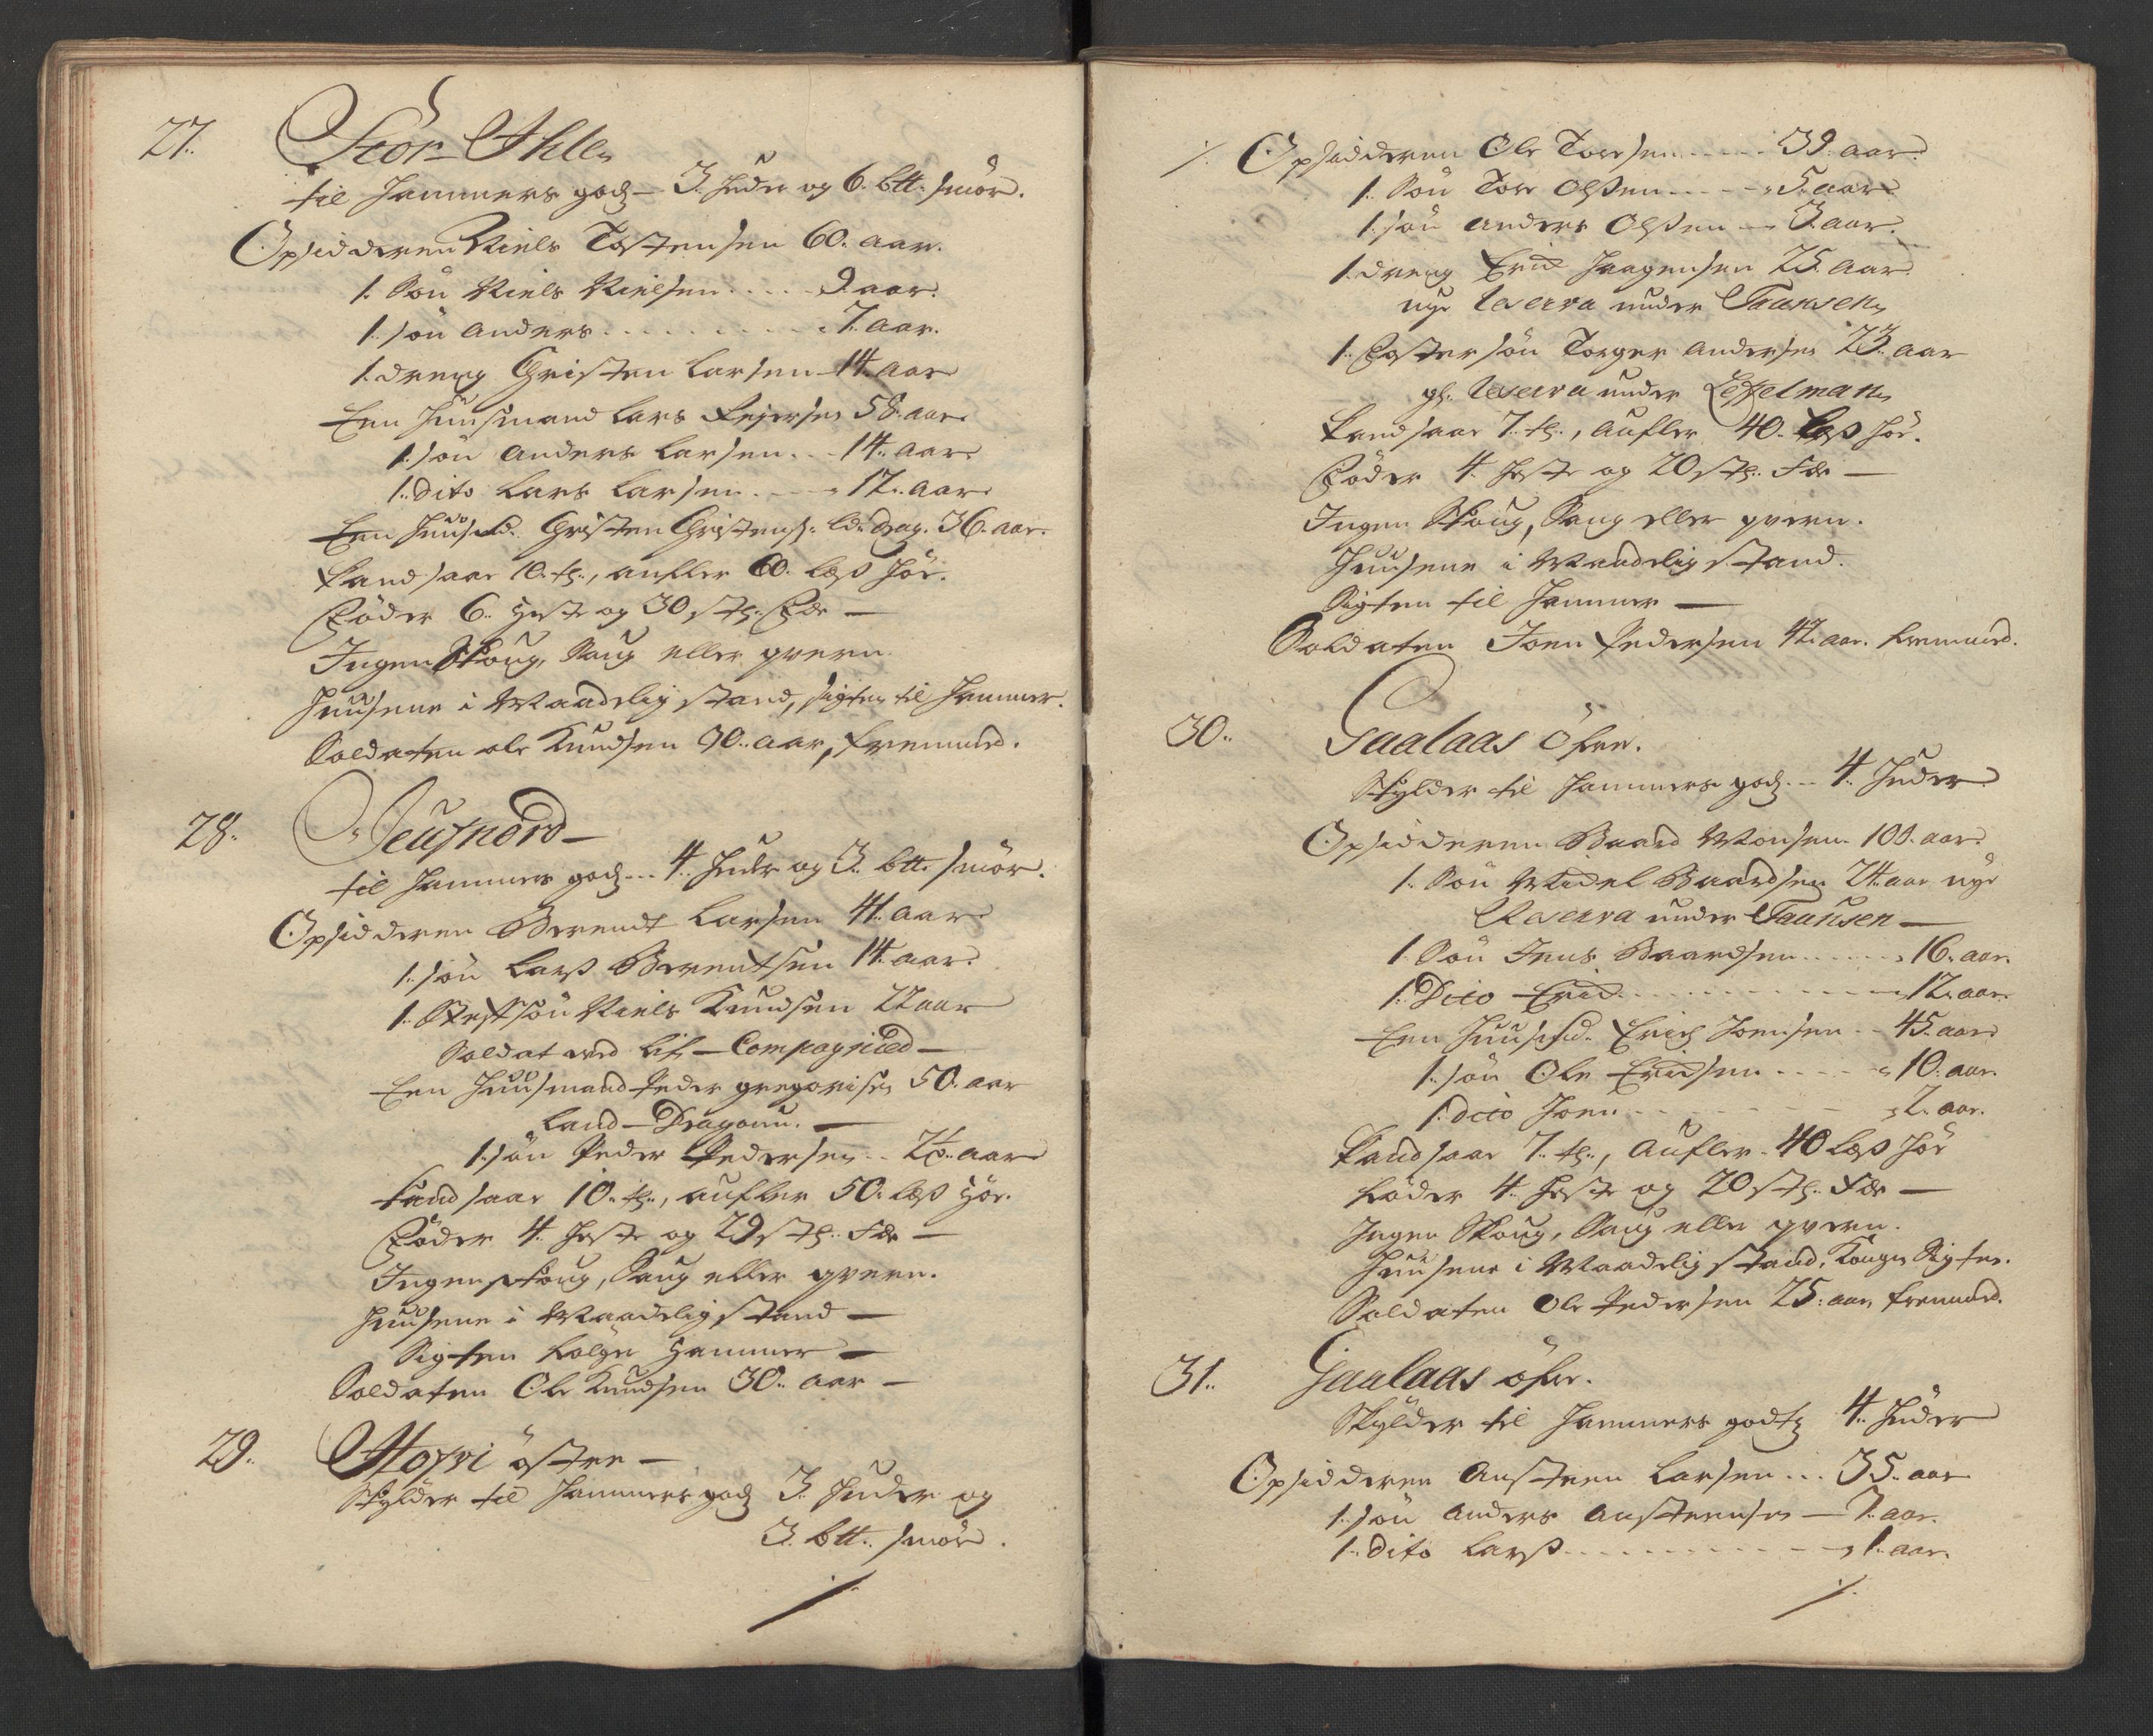 27. Stor-Ihle
til Hammers godz - 3. huder og 6. btt. smör.
Opsidderen Niels Tostensen 60. aar.
1. Sön Niels Nielsen .... 9. aar.
1. sön Anders ........ 7. aar.
1. dreng Christen Larsen 14. aar
Een Huusmand Lars Pejersen 58. aar
1. sön Anders Larsen .. 14. aar
1. dito Lars Larsen ... 12. aar
Een Huusmd. Christen Christens: ld: drag. 36. aar.
Kand saae 10. tr., aufler 60. læs höe.
Föder 6. heste og 30 stk. Fæ —
Ingen Skoug, Saug eller qvern.
Huusene i Maadelig stand, sigten til Hammer.
Soldaten ole Knudsen 30. aar, fremmed.
28. Neusnord -
til Hammers godz ... 4. huder og 3. btt. smör.
Opsidderen Berendt Larsen 41. aar
1. sön Lars Berentsen 14. aar.
1. Stefsön Niels Knudsen 22 aar
Soldat ved Lif-Compagnied -
Een Huusmand Peder gregorisen 50. aar
Land-Dragoun. —
1. sön Peder Pedersen .. aar
Kand saae 10. tr., aufler 50. læs höe.
Föder 4. heste og 29 stk. Fæ —
Ingen skoug, Saug eller qvern.
Huusene i Maadelig stand —
Sigten fölger Hammer —
Soldaten Ole Knudsen 30. aar —
29. östre —
Skylder til Hammers godz 3. huder og
3. btt. smör.
./.
./. Opsidderen Ole Toresen ..... 39. aar.
1. Sön Tore Olsen ..... 5. aar
1. sön Anders Olsen — 3. aar.
1. dreng Erich Haagensen 25. aar.
nye Reserva under Frausen
1. Foster sön Torger Andersen 23. aar
gl. Reserva under Leffelman
Kand saae 7. tr., aufler 40. læs höe.
Föder 4. heste og 20 stk. Fæ —
Ingen Skoug, Saug eller qvern.
Huusene i Maadelig stand.
Sigten til Hammer —
Soldaten Joen Pedersen 42. aar. fremmed.
30. Gaalaas öfre.
Skylder til Hammers godz .. 4. huder
Opsidderen Baard Monsen 100. aar.
1. Sön Mickel Baardsen 24. aar nye
Reserva under Frausen —
1. Sön Jens Baardsen ..... 16. aar.
1. Dito Erich ......... 12. aar.
Een Huusmd. Erich Joensen .. 45. aar
1. sön Ole Erichsen .... 10. aar.
1. dito Joen ....... 2. aar.
Kand saae 7. tr., aufler 40 læs höe
föder 4. heste og 20 stk. Fæ —
Ingen Skoug, Saug elle qvern.
Huusene i Maadelig stand, Konge Sigten.
Soldaten Ole Pedersen 25. aar, fremmed.
31. Gaalaas öfre.
Skylder til Hammers godtz 4. huder
Opsidderen Austeen Larsen ... 35. aar
1. sön Anders Austeensen — 7. aar.
1. dito Lars ......... 1. aar.
./.